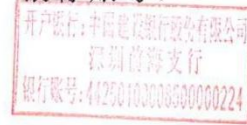 开户银行:中国建设银行股份有限公司
深圳前海支行
银行账号:44250103008500000224